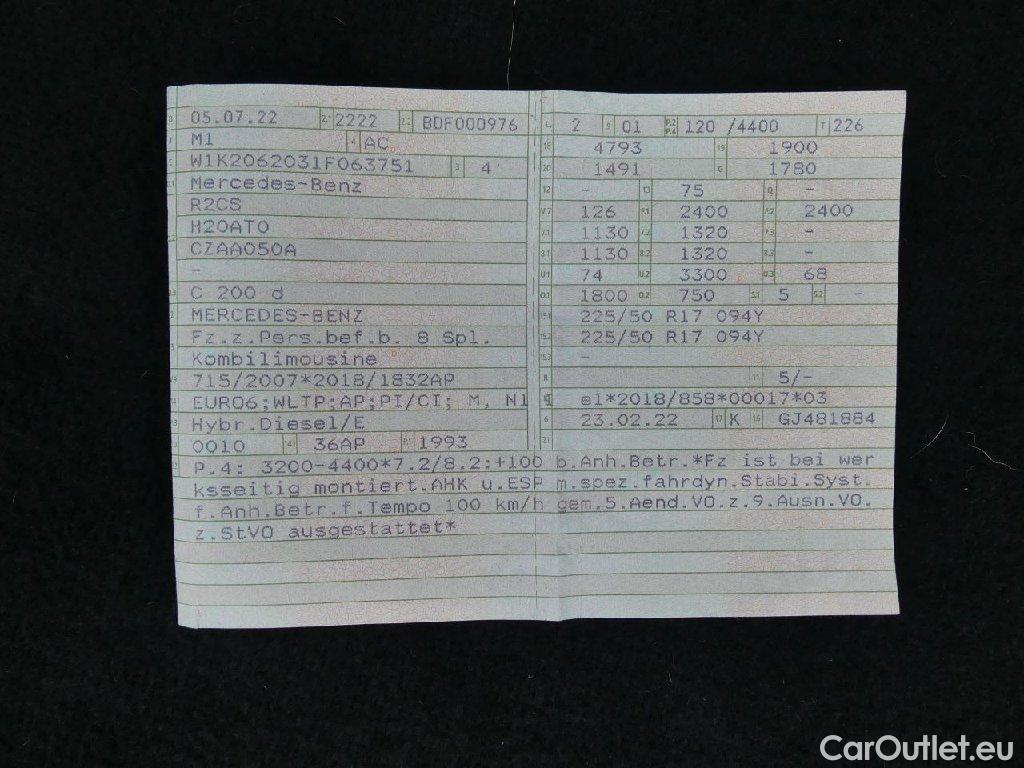 05.07.22 2222 BDF000976
M1 AC
W1K2062031F063751 4
Mercedes-Benz
R2CS
H20AT0
CZAA050A
-
C 200 d
MERCEDES-BENZ
Fz.z.Pers.bef.b. 8 Spl.
Kombilimousine
715/2007*2018/1832AP
EURO6;WLTP;AP;PI/CI; M, N1 I
Hybr.Diesel/E
0010 36AP 1993
2 01 120 /4400 226
4793 1900
1491 1780
- 75 -
126 2400 2400
1130 1320 -
1130 1320 -
74 3300 68
1800 750 5 -
225/50 R17 094Y
225/50 R17 094Y
-
5/-
e1*2018/858*00017*03
23.02.22 K GJ481884
P.4: 3200-4400*7.2/8.2:+100 b.Anh.Betr.*Fz ist bei wer
ksseitig montiert.AHK u.ESP m.spez.fahrdyn.Stabi.Syst.
f.Anh.Betr.f.Tempo 100 km/h gem.5.Aend.VO.z.9.Ausn.VO.
z.StVO ausgestattet*
CarOutlet.eu